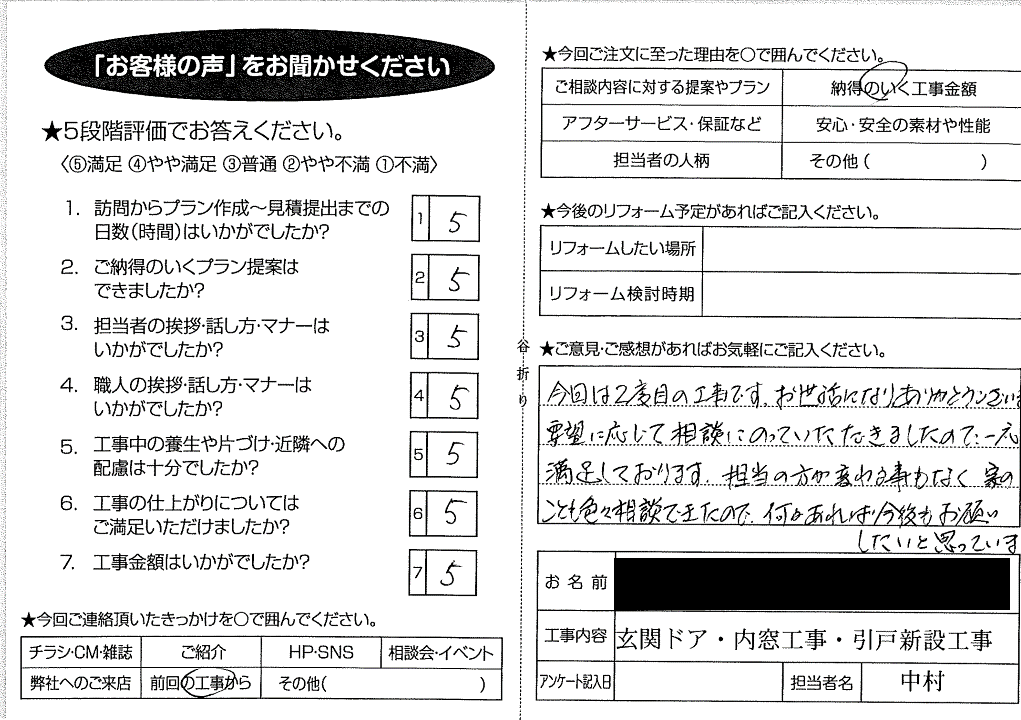 「お客様の声」をお聞かせください
★5段階評価でお答えください。
〈⑤満足 ④やや満足 ③普通 ②やや不満 ①不満〉
1. 訪問からプラン作成～見積提出までの
日数(時間)はいかがでしたか? 1 5
2. ご納得のいくプラン提案は
できましたか? 2 5
3. 担当者の挨拶・話し方・マナーは
いかがでしたか? 3 5
4. 職人の挨拶・話し方・マナーは
いかがでしたか? 4 5
5. 工事中の養生や片づけ・近隣への
配慮は十分でしたか? 5 5
6. 工事の仕上がりについては
ご満足いただけましたか? 6 5
7. 工事金額はいかがでしたか? 7 5
★今回ご連絡頂いたきっかけを○で囲んでください。
チラシ・CM・雑誌 ご紹介 HP・SNS 相談会・イベント
弊社へのご来店 前回の工事から その他( )
谷折り
★今回ご注文に至った理由を○で囲んでください。
ご相談内容に対する提案やプラン 納得のいく工事金額
アフターサービス・保証など 安心・安全の素材や性能
担当者の人柄 その他( )
★今後のリフォーム予定があればご記入ください。
リフォームしたい場所
リフォーム検討時期
★ご意見・ご感想があればお気軽にご記入ください。
今回は2度目の工事です。お世話になりありがとうございま
要望に応じて相談にのっていただきましたので、
満足しております。担当の方が変わる事もなく 家の
ことも色々相談できたので、何かあれば今後もお願い
したいと思っていま
お名前
工事内容 玄関ドア・内窓工事・引戸新設工事
アンケート記入日 担当者名 中村